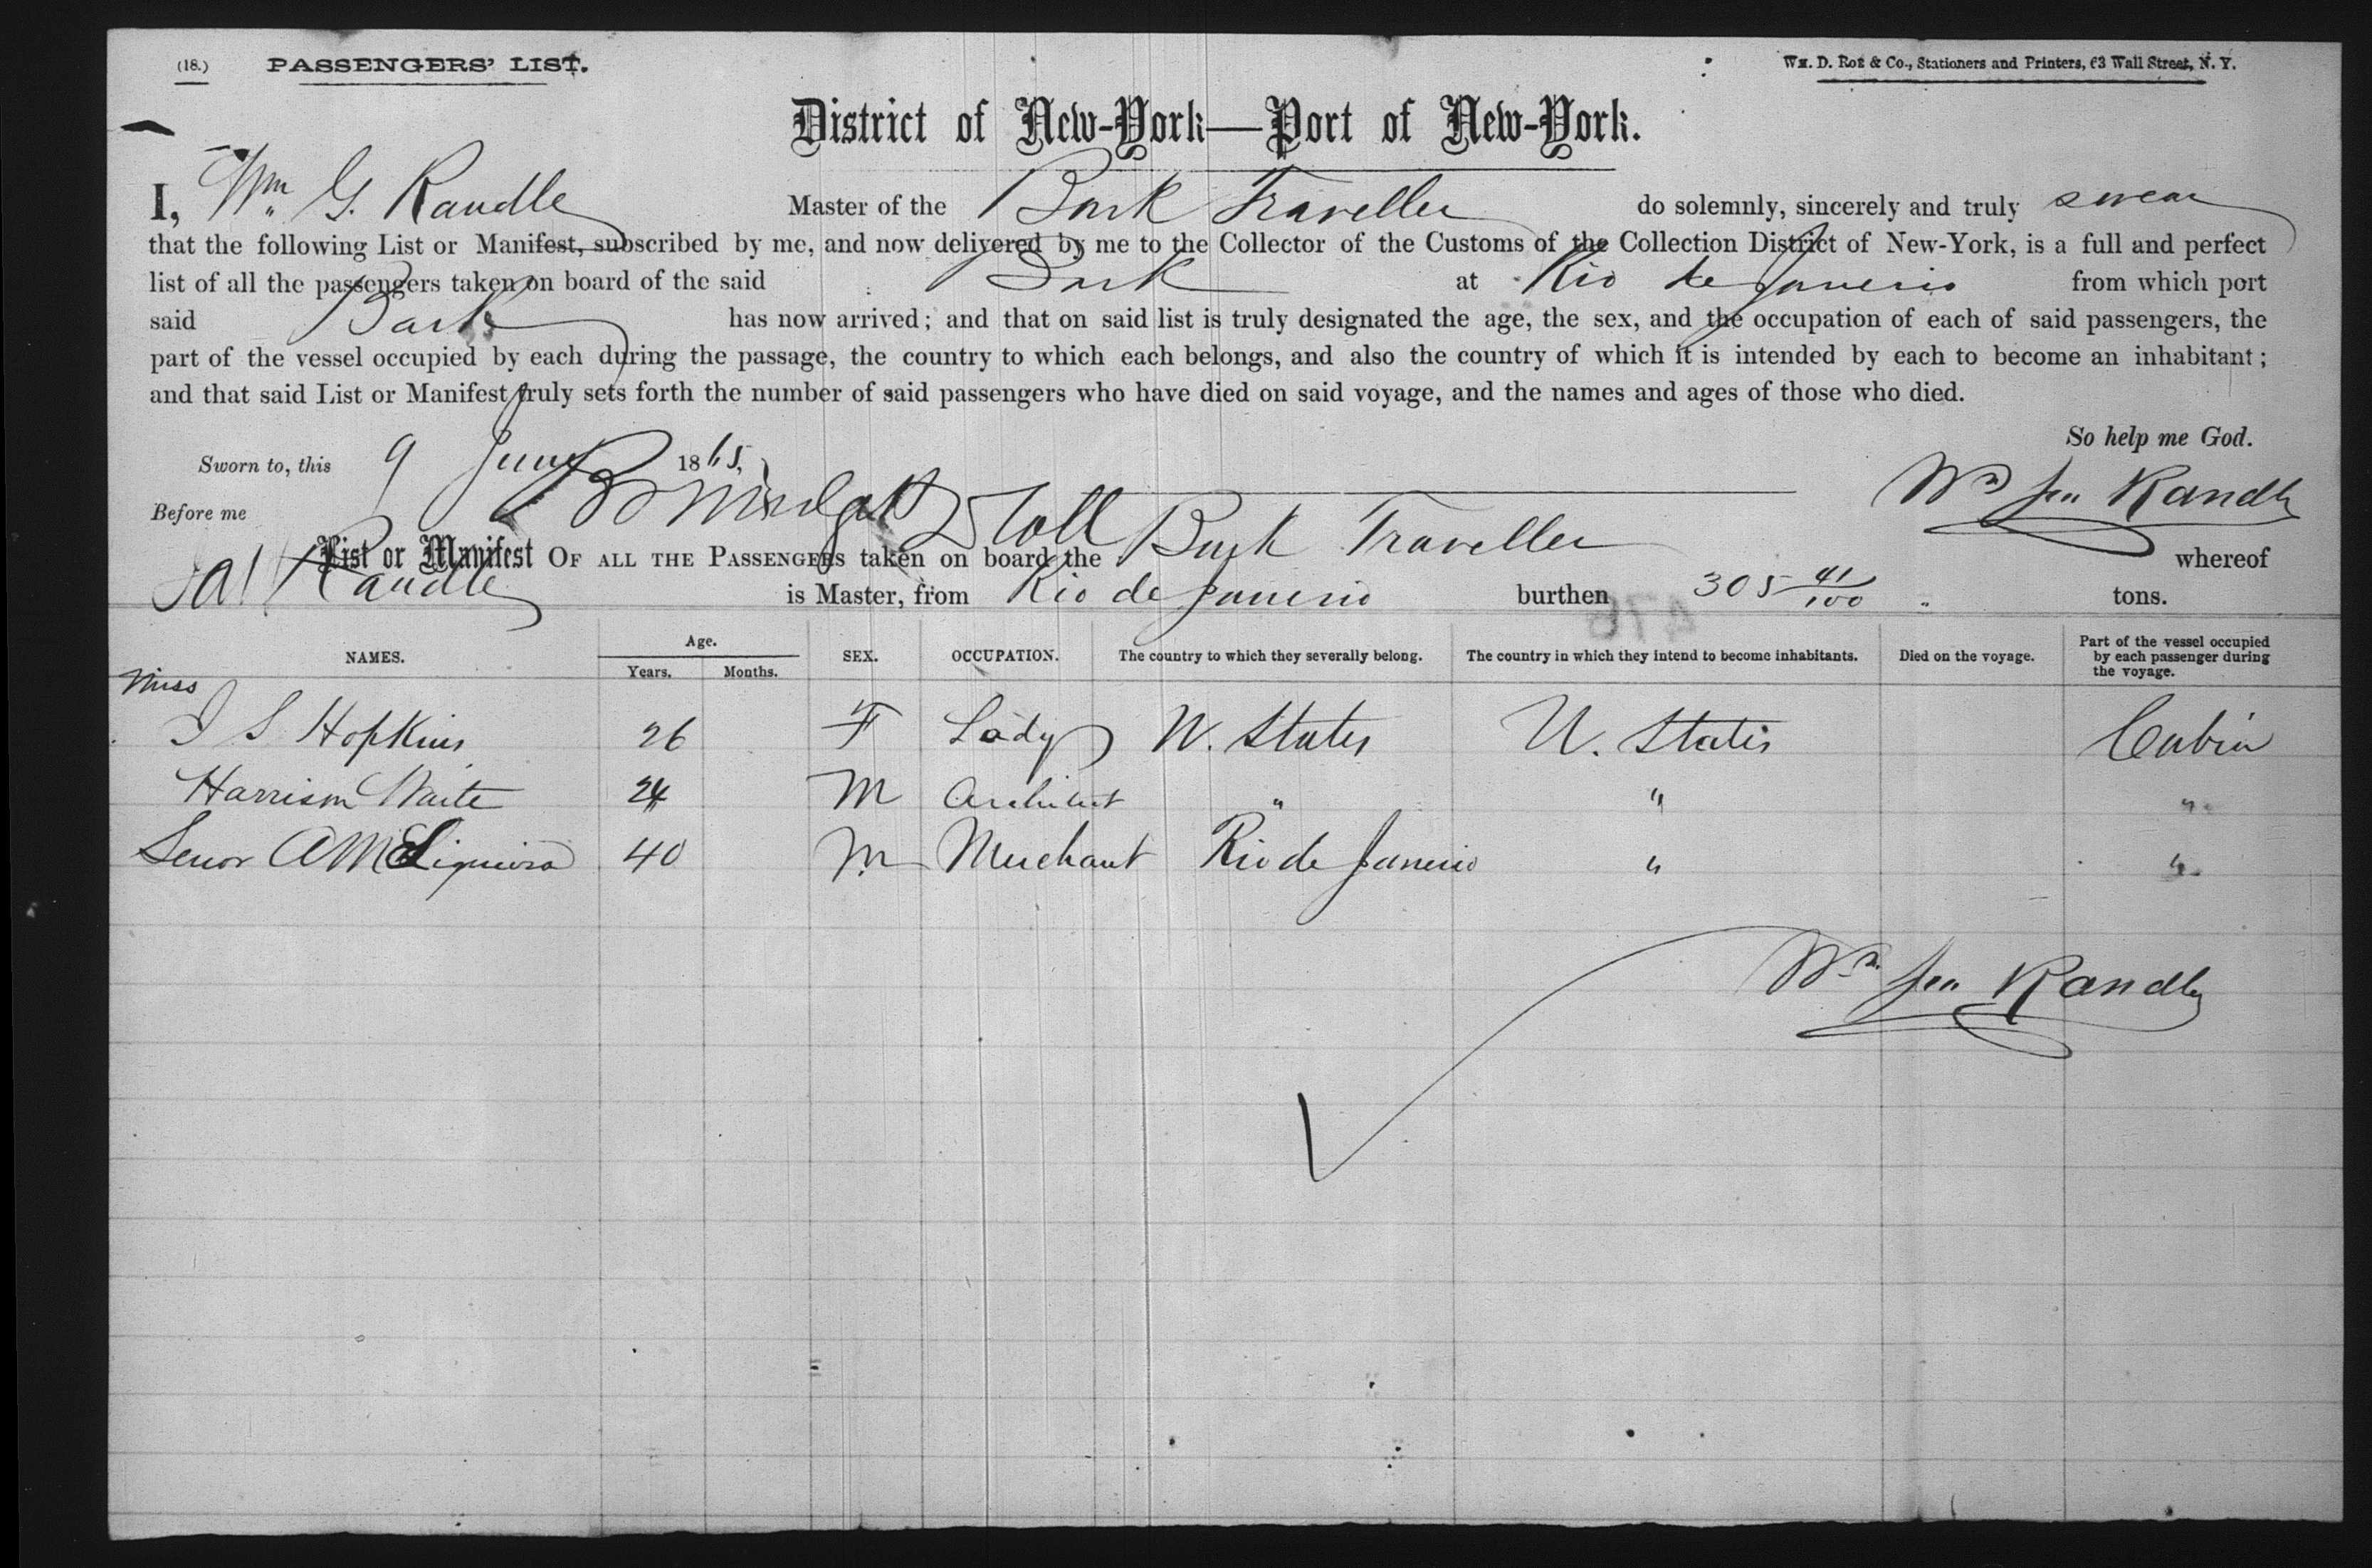 (18.) PASSENGERS' LIST. Wm. D. Roe & Co., Stationers and Printers, 63 Wall Street, N. Y.
District of New-York—Port of New-York.
I, Wm G. Randle Master of the Bark Traveller do solemnly, sincerely and truly swear
that the following List or Manifest, subscribed by me, and now delivered by me to the Collector of the Customs of the Collection District of New-York, is a full and perfect
list of all the passengers taken on board of the said Bark at Rio de Janerio from which port
said Bark has now arrived; and that on said list is truly designated the age, the sex, and the occupation of each of said passengers, the
part of the vessel occupied by each during the passage, the country to which each belongs, and also the country of which it is intended by each to become an inhabitant;
and that said List or Manifest truly sets forth the number of said passengers who have died on said voyage, and the names and ages of those who died.
So help me God.
Sworn to, this 9 June 1865,
Before me Wm Geo Randle
List or Manifest OF ALL THE PASSENGERS taken on board the Bark Traveller whereof
Randle is Master, from Rio de Janerio burthen 305 41/100 tons.
NAMES. Age. Years. Months. SEX. OCCUPATION. The country to which they severally belong. The country in which they intend to become inhabitants. Died on the voyage. Part of the vessel occupied by each passenger during the voyage.
Miss
I S Hopkins 26 F Lady U. States U. States Cabin
Harrison Waite 24 M Architect " " "
Senor A M Siqueira 40 M Merchant Rio de Janerio " "
Wm Geo Randle